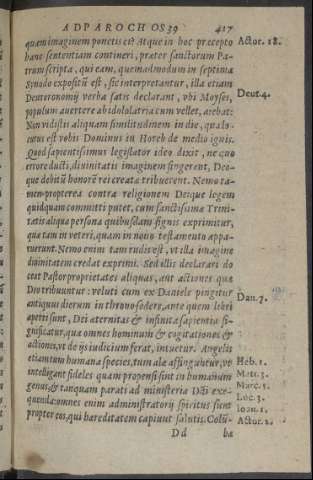 AD PAROCHOS 39 417
quam imaginem ponetis ei? Atque in hoc præcepto Actor. 18.
hanc sententiam contineri, præter sanctorum Pa-
trum scripta, qui eam, quemadmodum in septima
Synodo expositū est, sic interpretantur, illa etiam
Deuteronomij verba satis declarant, vbi Moyses, Deut. 4.
populum auertere ab idololatria cum vellet, aiebat:
Non vidistis aliquam similitudinem in die, qua lo-
cutus est vobis Dominus in Horeb de medio ignis.
Quod sapientissimus legislator ideo dixit, ne quo
errore ducti, diuinitatis imaginem fingerent, Deo-
que debitū honorē rei creatæ tribuerent. Nemo ta-
men propterea contra religionem Deique legem
quidquam committi putet, cum sanctissimæ Trini-
tatis aliqua persona quibusdam signis exprimitur,
quæ tam in veteri, quam in nouo testamento appa-
ruerunt. Nemo enim tam rudis est, vt illa imagine
diuinitatem credat exprimi. Sed illis declarari do
ceat Pastor proprietates aliquas, aut actiones quæ
Deo tribuuntur: veluti cum ex Daniele pingitur Dan. 7.
antiquus dierum in throno sedere, ante quem libri
aperti sunt, Dei æternitas & infinita sapientia si-
gnificatur, qua omnes hominum & cogitationes &
actiones, vt de ijs iudicium ferat, intuetur. Angelis
etiam tum humana species, tum alæ affinguntur, vt Heb. 1.
intelligant fideles quam propensi sint in humanum Matt. 3.
genus, & tanquam parati ad ministeria Dñi exe- Marc. 1.
quenda: omnes enim administratorij spiritus sunt Luc. 3.
Ioan. 1.
propter eos, qui hæreditatem capiunt salutis. Colū- Actor. 2.
D d ba